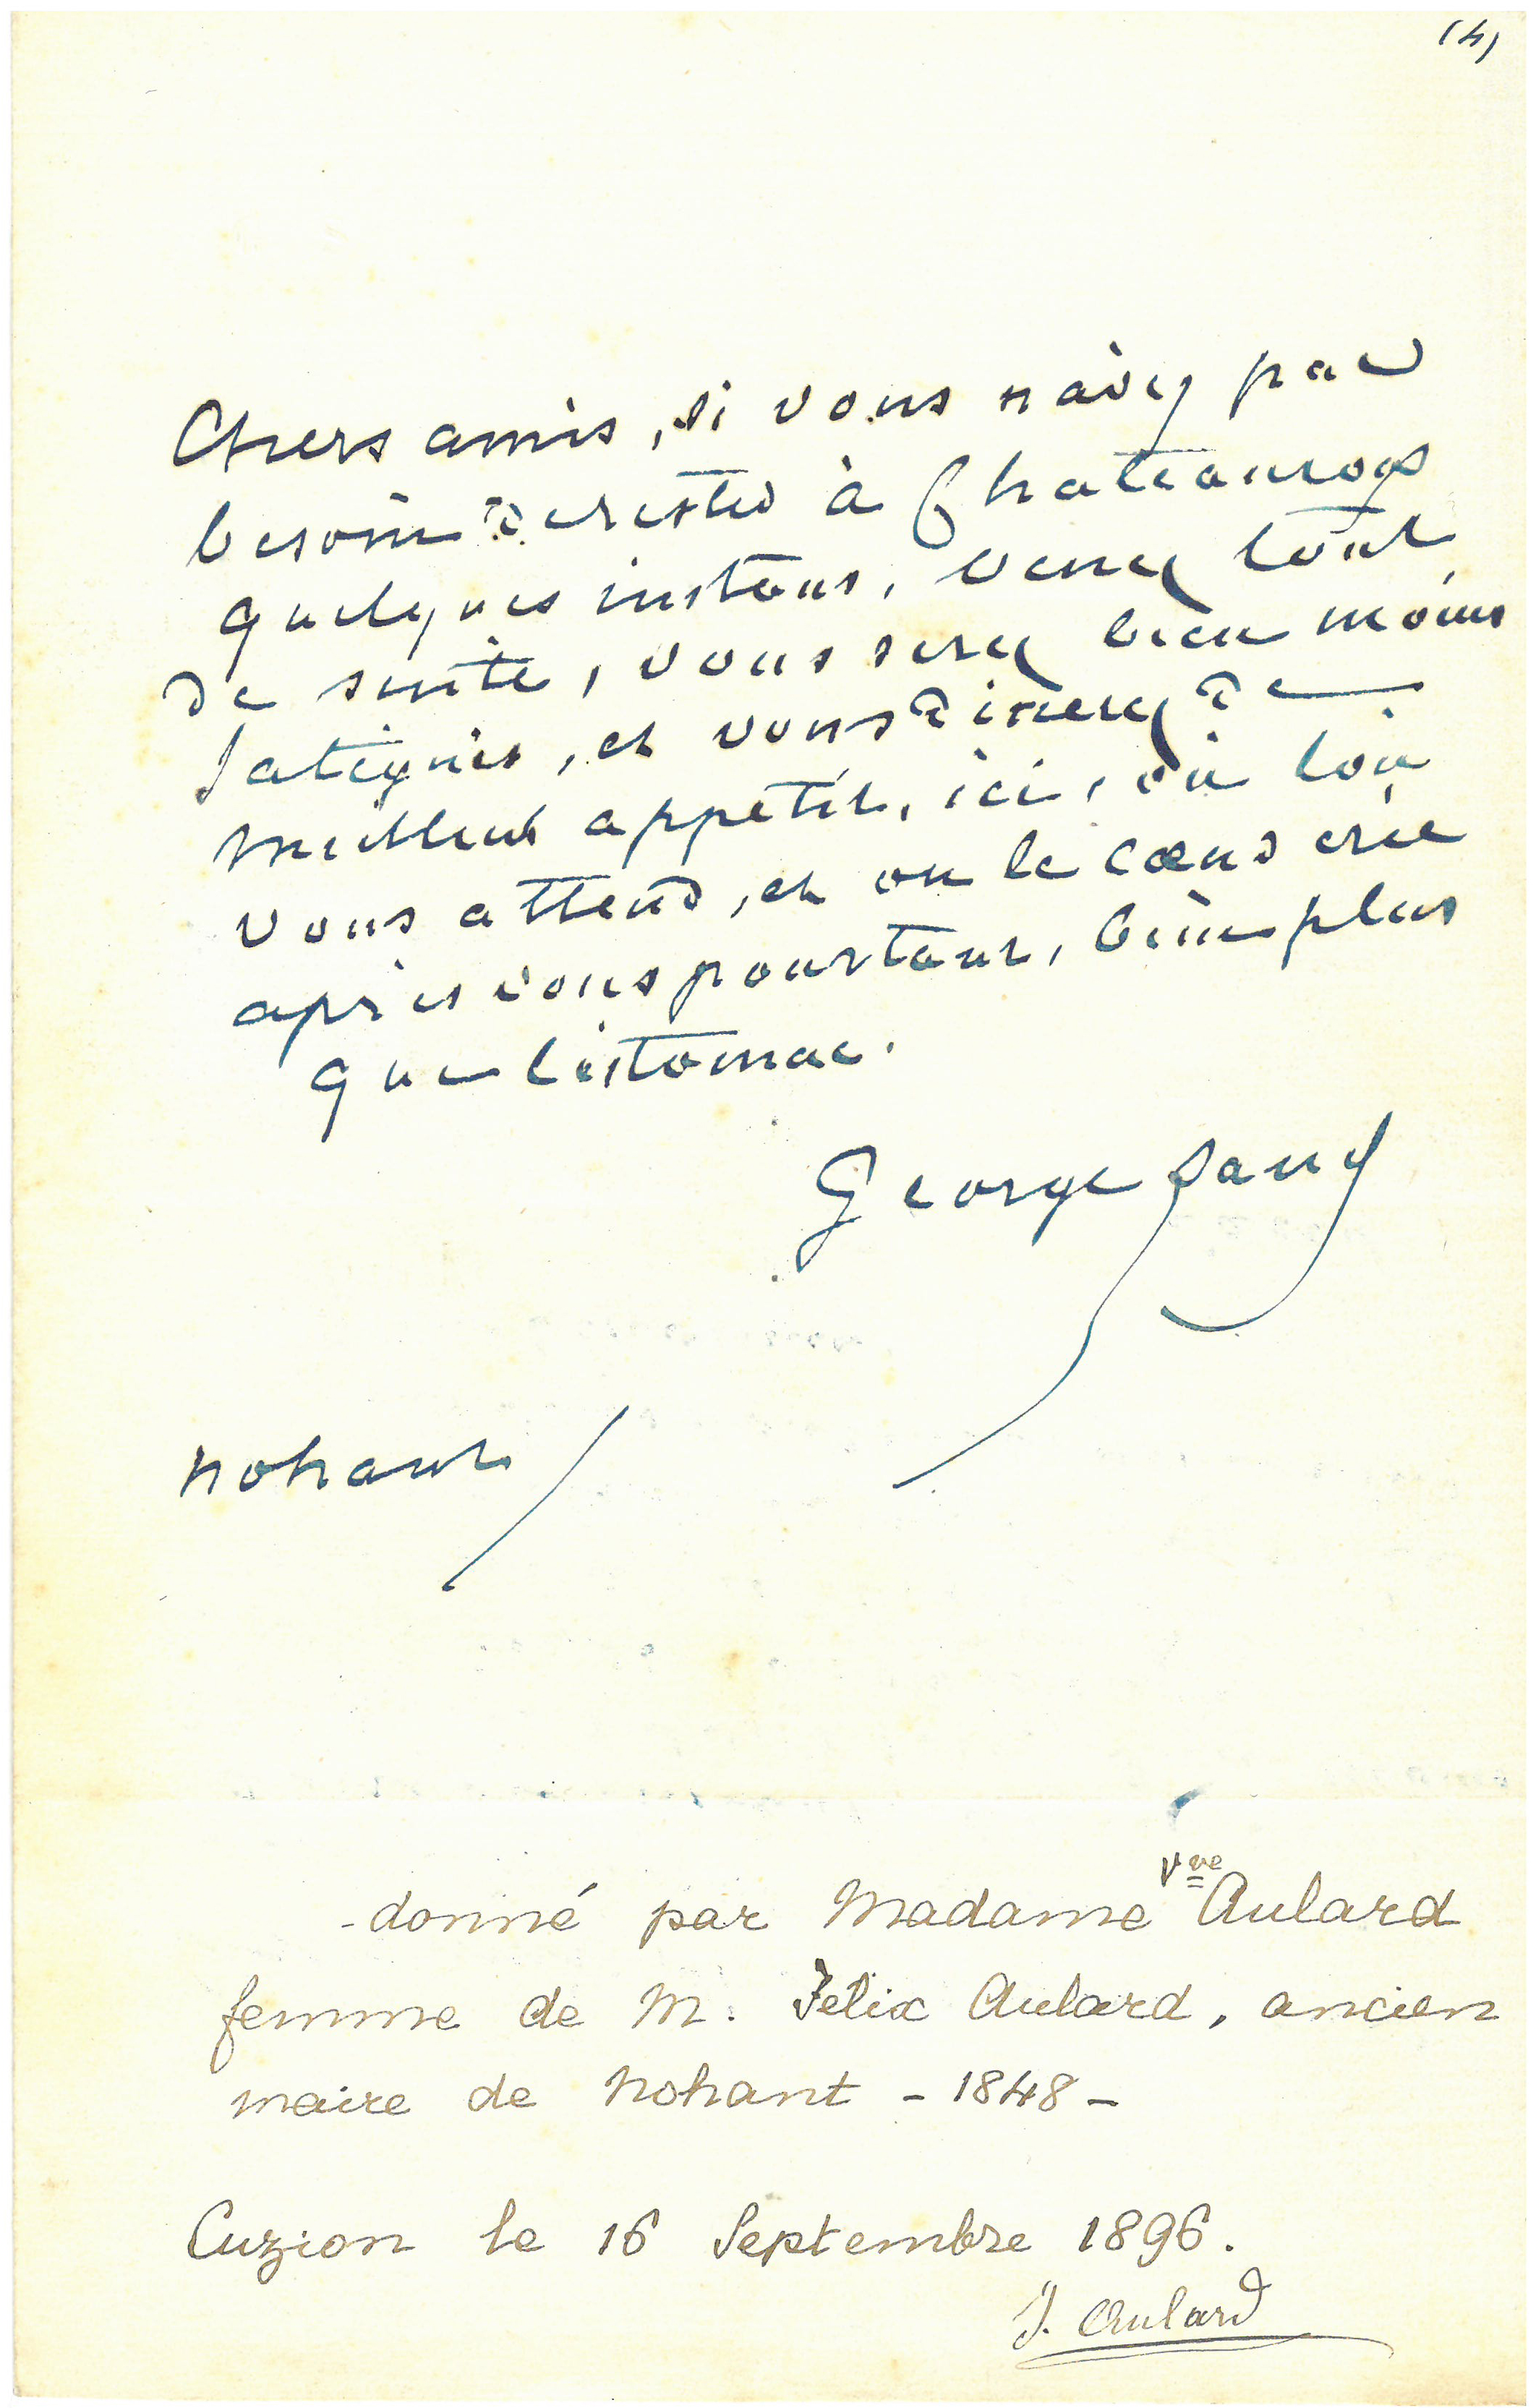 (4)
Chers amis, si vous n'avez pas
besoin de rester à Chateauroux
quelques instans, venez tout
de suite, vous serez bien moins
fatigués, et vous dinerez de
meilleur appétit, ici, où l'on
vous attend, et où le cœur crie
après vous pourtant, bien plus
que l'estomac.
George Sand
Nohant
- donné par Madame Vve Aulard
femme de M. Felix Aulard, ancien
maire de Nohant - 1848 -
Cuzion le 16 Septembre 1896.
J. Aulard